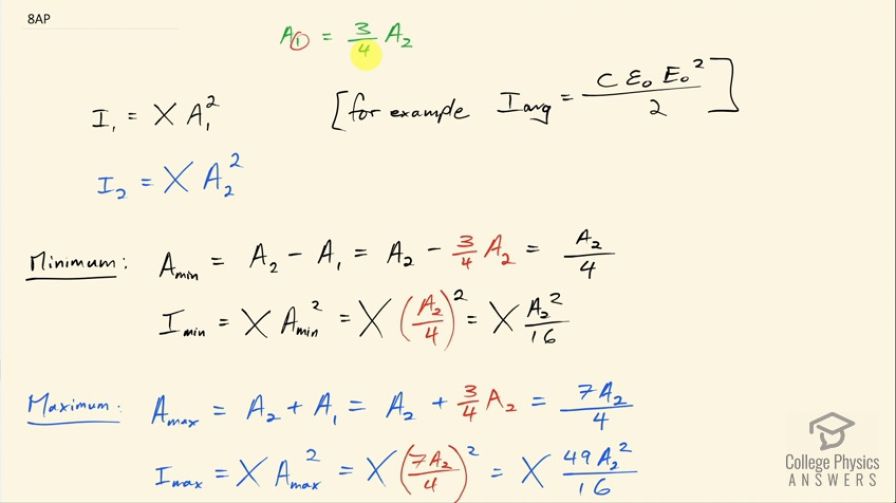 8AP
A₁ = 3/4 A₂
I₁ = X A₁²
[for example I avg = C ε₀ E₀² / 2]
I₂ = X A₂²
Minimum: A min = A₂ - A₁ = A₂ - 3/4 A₂ = A₂/4
I min = X A min² = X (A₂/4)² = X A₂²/16
Maximum: A max = A₂ + A₁ = A₂ + 3/4 A₂ = 7A₂/4
I max = X A max² = X (7A₂/4)² = X 49A₂²/16
College Physics
ANSWERS